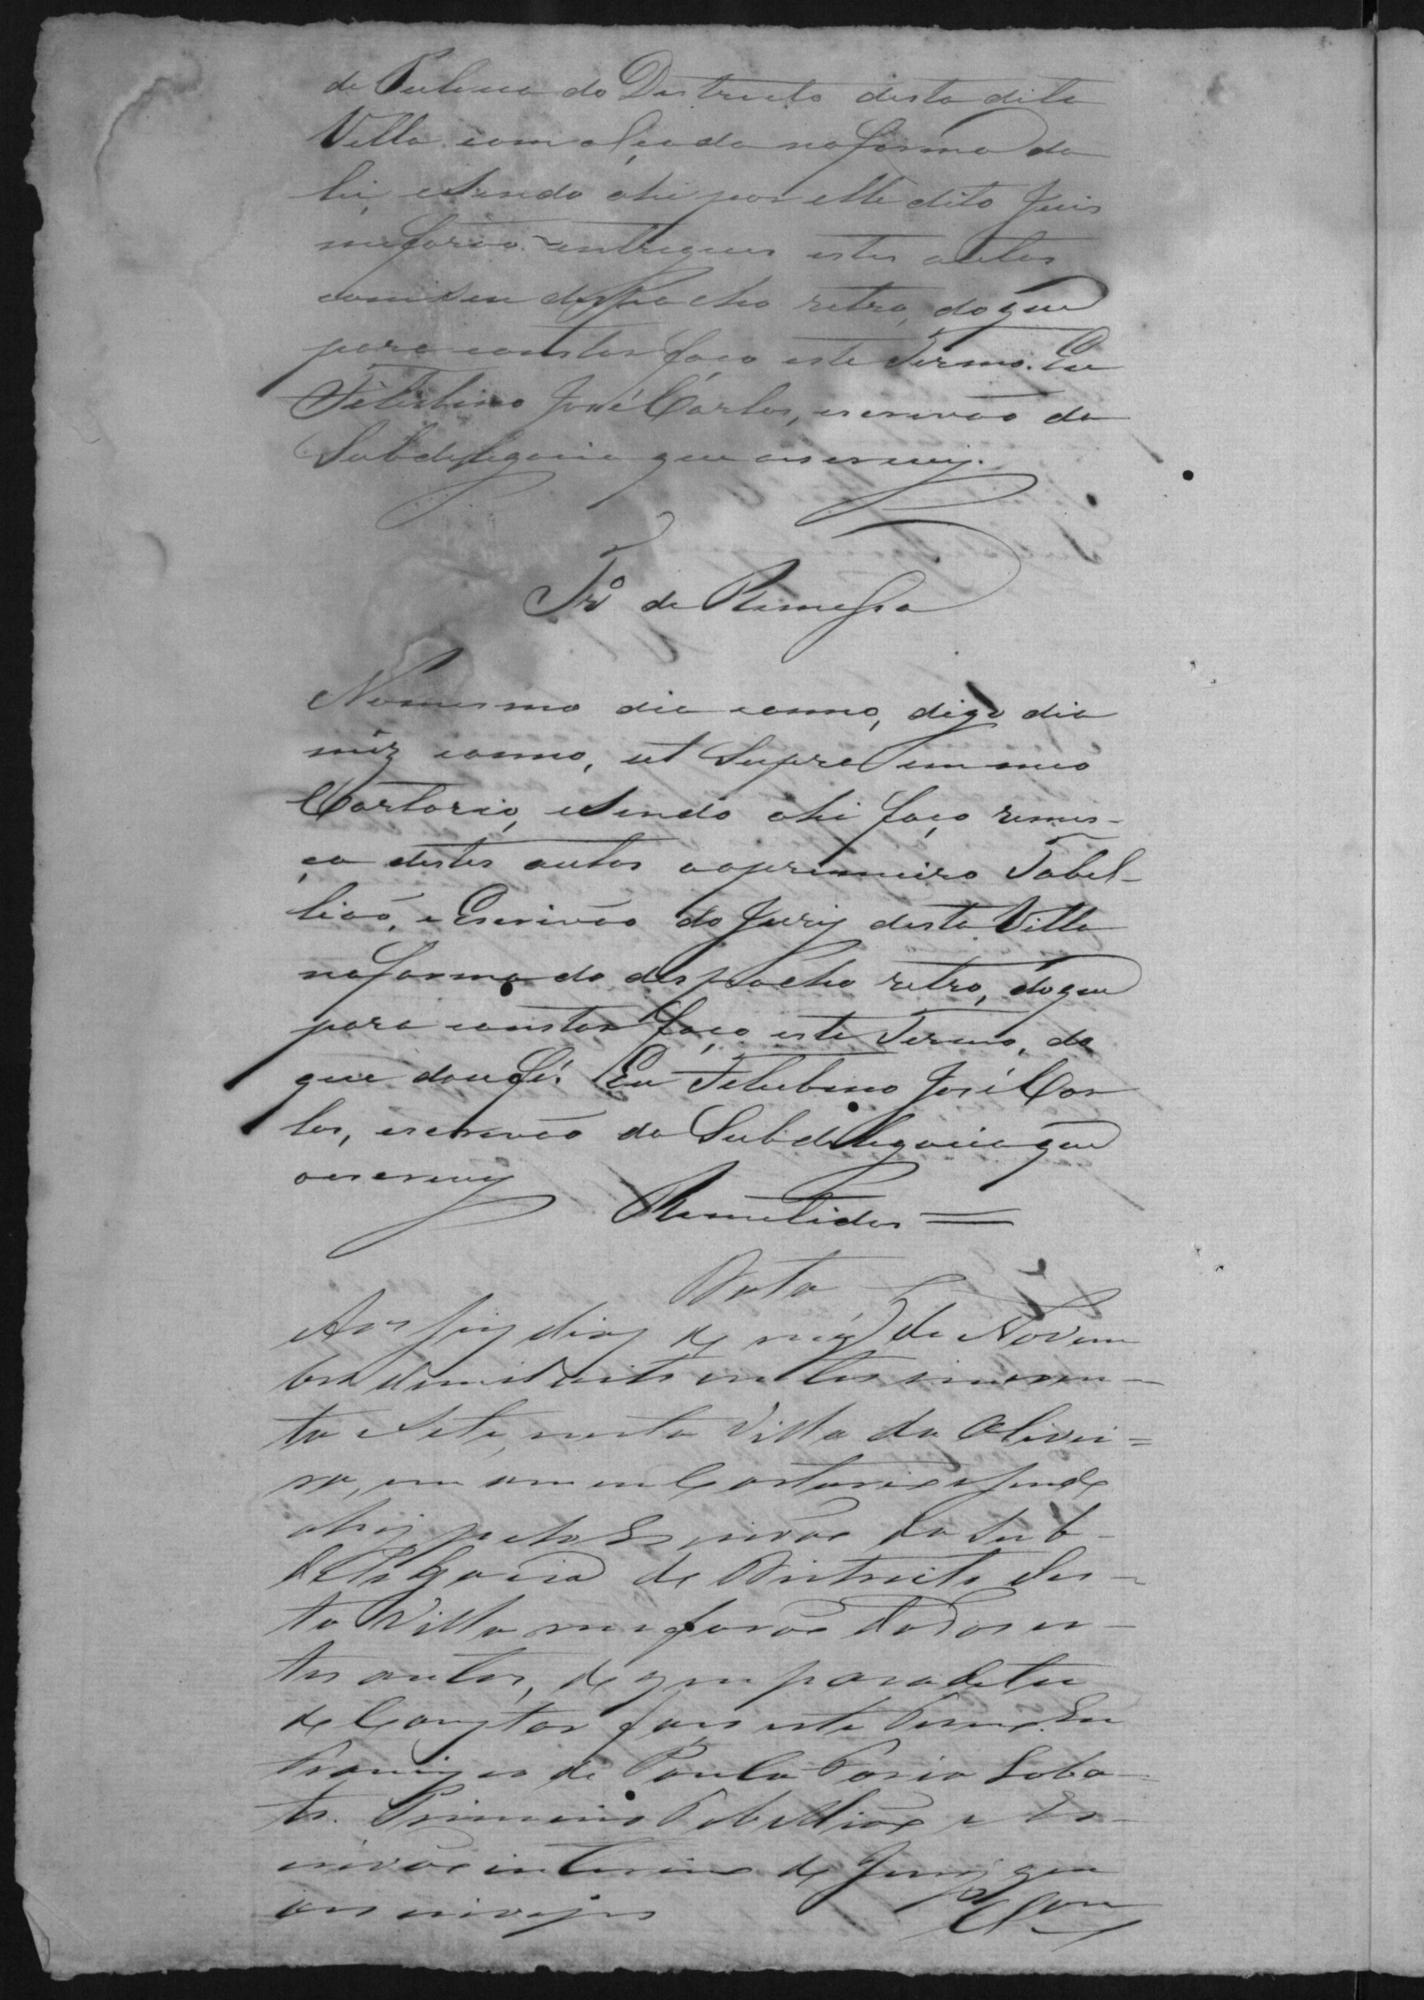 de Policia do Districto desta dita
Villa com alçada na forma da
lei, e sendo ahi por elle dito Juis
me forão entregues estes autos
com seu despacho retro, do que
para constar faço este Termo. Eu
José Carlos, escrivão da
Subdelegacia que escrevy.
Tr.º de Remessa
No mesmo dia e anno, digo dia
mêz e anno, ut Supra em meo
Cartorio, e sendo ahi faço remes-
ça destes autos ao primeiro Tabel-
lião, e Escrivão do Jury desta Villa
na forma do despacho retro, do que
para constar faço este Termo, do
que dou fé. Eu José Car
los, escrivão da Subdelegacia que
o escrevy Remetidos =
Data
Aos dias do mez de Novem
bro de mil oito centos cincoen-
ta e Sete, nesta Villa da Olivei=
ra, em o meu Cartorio e sendo
ahi, pelo Escrivão da Sub-
delegacia do Districto des-
ta Villa me forão dados es-
tes autos, de que para
de Constar faço este Termo. Eu
Francisco de Paula Loba-
to. Primeiro Tabellião e Es-
crivão interino do Jury que
o escrevy